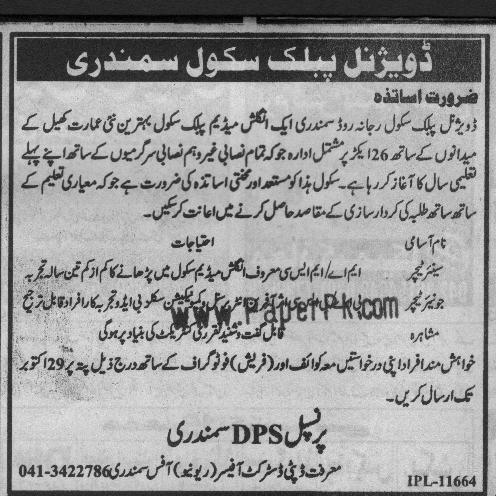 ڈویژنل پبلک سکول سمندری
ضرورت اساتذہ
ڈویژنل پبلک سکول رجانہ روڈ سمندری ایک انگلش میڈیم پبلک سکول بہترین نئی عمارت کھیل کے
میدانوں کے ساتھ 26 ایکڑ پر مشتمل ادارہ جو کہ تمام نصابی غیر و ہم نصابی سرگرمیوں کے ساتھ اپنے پہلے
تعلیمی سال کا آغاز کر رہا ہے۔ سکول ہذا کو مستعد اور محنتی اساتذہ کی ضرورت ہے جو کہ معیاری تعلیم کے
ساتھ ساتھ طلبہ کی کردار سازی کے مقاصد حاصل کرنے میں اعانت کر سکیں۔
نام آسامی احتیاجات
سینئر ٹیچر ایم اے/ایم ایس سی معروف انگلش میڈیم سکول میں پڑھانے کا کم از کم تین سالہ تجربہ
جونیئر ٹیچر بی ایڈ و تجربہ کار افراد قابل ترجیح
مشاہرہ قابل گفت و شنید تقرری کنٹریکٹ کی بنیاد پر ہوگی
خواہش مند افراد اپنی درخواستیں معہ کوائف اور (فریش) فوٹوگراف کے ساتھ درج ذیل پتہ پر 29 اکتوبر
تک ارسال کریں۔
پرنسپل DPS سمندری
معرفت ڈپٹی ڈسٹرکٹ آفیسر (ریونیو) آفس سمندری 041-3422786
IPL-11664
www.PaperPk.com